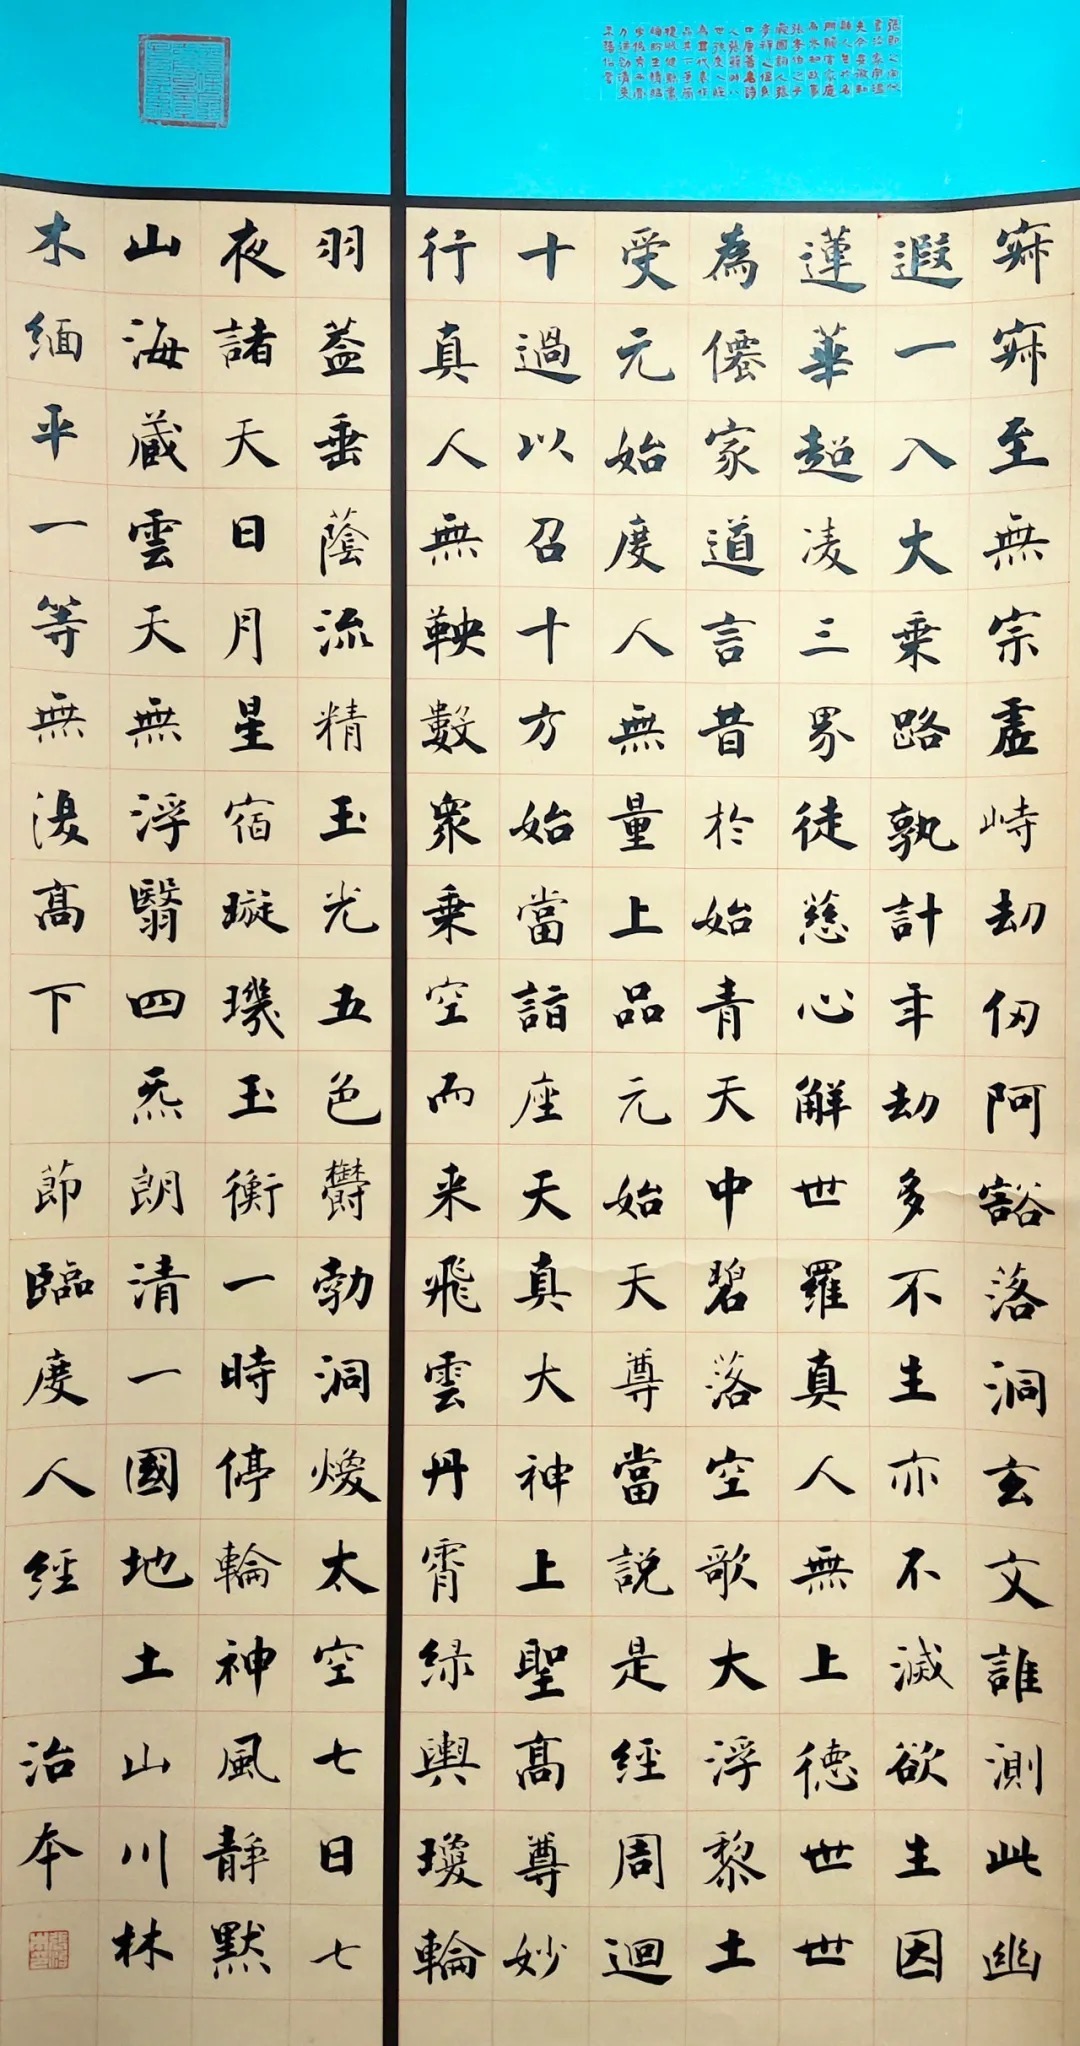 寂寂至無宗虛峙劫仞阿豁落洞玄文誰測此幽
遐一入大乘路孰計年劫多不生亦不滅欲生因
蓮華超凌三界徒慈心解世羅真人無上德世世
為僊家道言昔於始青天中碧落空歌大浮黎土
受元始度人無量上品元始天尊當說是經周迴
十過以召十方始當詣座天真大神上聖高尊妙
行真人無鞅數衆乘空而来飛雲丹霄緑輿瓊輪
羽蓋垂蔭流精玉光五色欝勃洞煥太空七日七
夜諸天日月星宿璇璣玉衡一時停輪神風靜默
山海藏雲天無浮翳四炁朗清一國地土山川林
木緬平一等無復高下 節臨度人經 治本